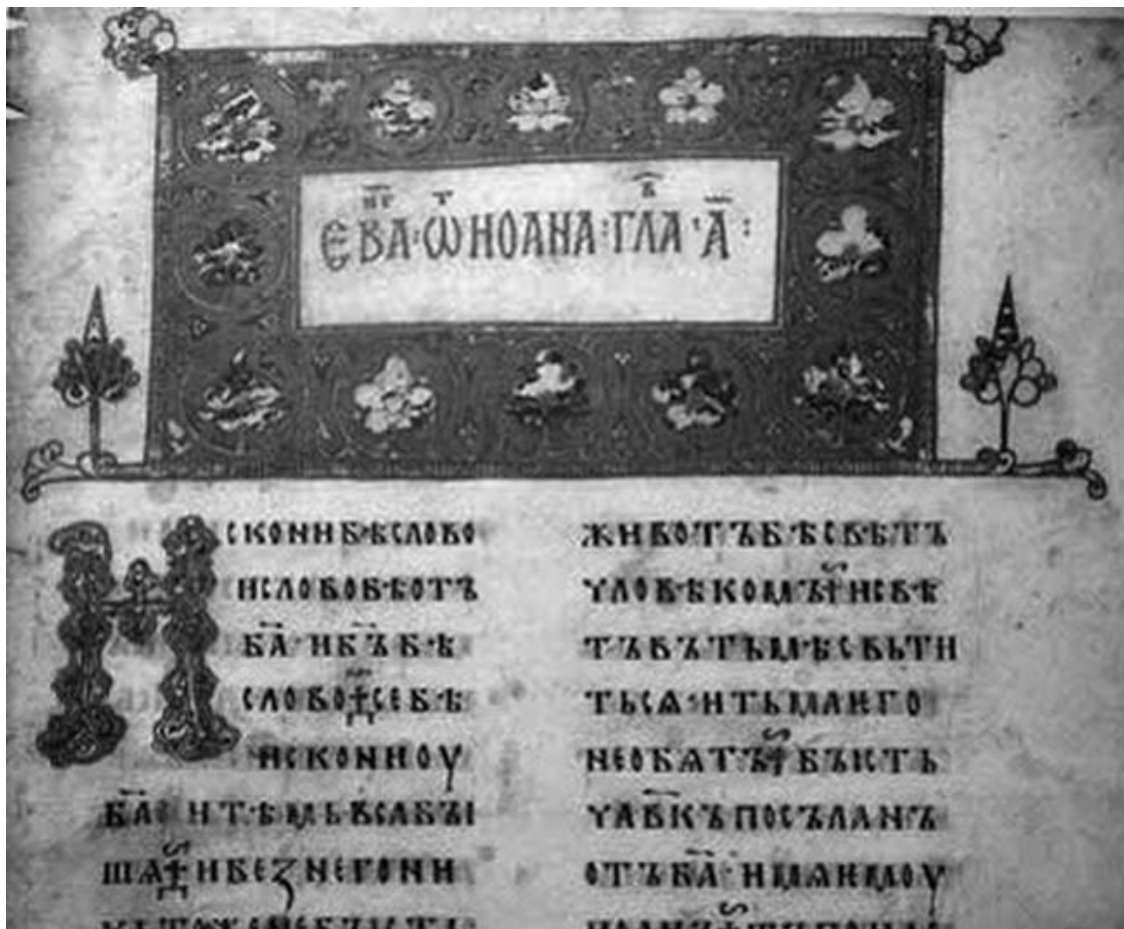 ЕВАНГ · ѾИОАНА : ГЛАВ · А҃ :
ИСКОНИБѢСЛОВО
ИСЛОВОБѢОТЪ
БА҃ · ИБЪ҃БѢ
СЛОВО СЕБѢ
ИСКОНИОУ
БА҃ · ИТѢМЬВСАБЪІ
ШѦ ИБЕЗНЕГОНИ
ЖИВОТЪБѢСВѢТЪ
ЧЛОВѢКОМЪ ИСВѢ
ТЪВЪТЬМѢСВЬТИ
ТЬСѦ · ИТЬМАѤГО
НЕОБѦТЪ БЪІСТЬ
ЧЛВ҃КЪПОСЪЛАНЪ
ОТЪБА҃ · ИМѦѤМОУ